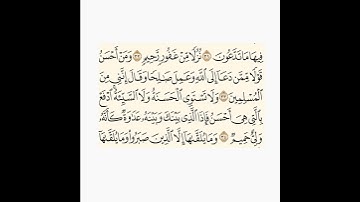 فِيهَا مَا تَدَّعُونَ ﴿٣١﴾ نُزُلًا مِّنْ غَفُورٍ رَّحِيمٍ ﴿٣٢﴾ وَمَنْ أَحْسَنُ
قَوْلًا مِّمَّن دَعَآ إِلَى ٱللَّهِ وَعَمِلَ صَٰلِحًا وَقَالَ إِنَّنِى مِنَ
ٱلْمُسْلِمِينَ ﴿٣٣﴾ وَلَا تَسْتَوِى ٱلْحَسَنَةُ وَلَا ٱلسَّيِّئَةُ ٱدْفَعْ
بِٱلَّتِى هِىَ أَحْسَنُ فَإِذَا ٱلَّذِى بَيْنَكَ وَبَيْنَهُۥ عَدَٰوَةٌ كَأَنَّهُۥ
وَلِىٌّ حَمِيمٌ ﴿٣٤﴾ وَمَا يُلَقَّىٰهَآ إِلَّا ٱلَّذِينَ صَبَرُوا۟ وَمَا يُلَقَّىٰهَآ